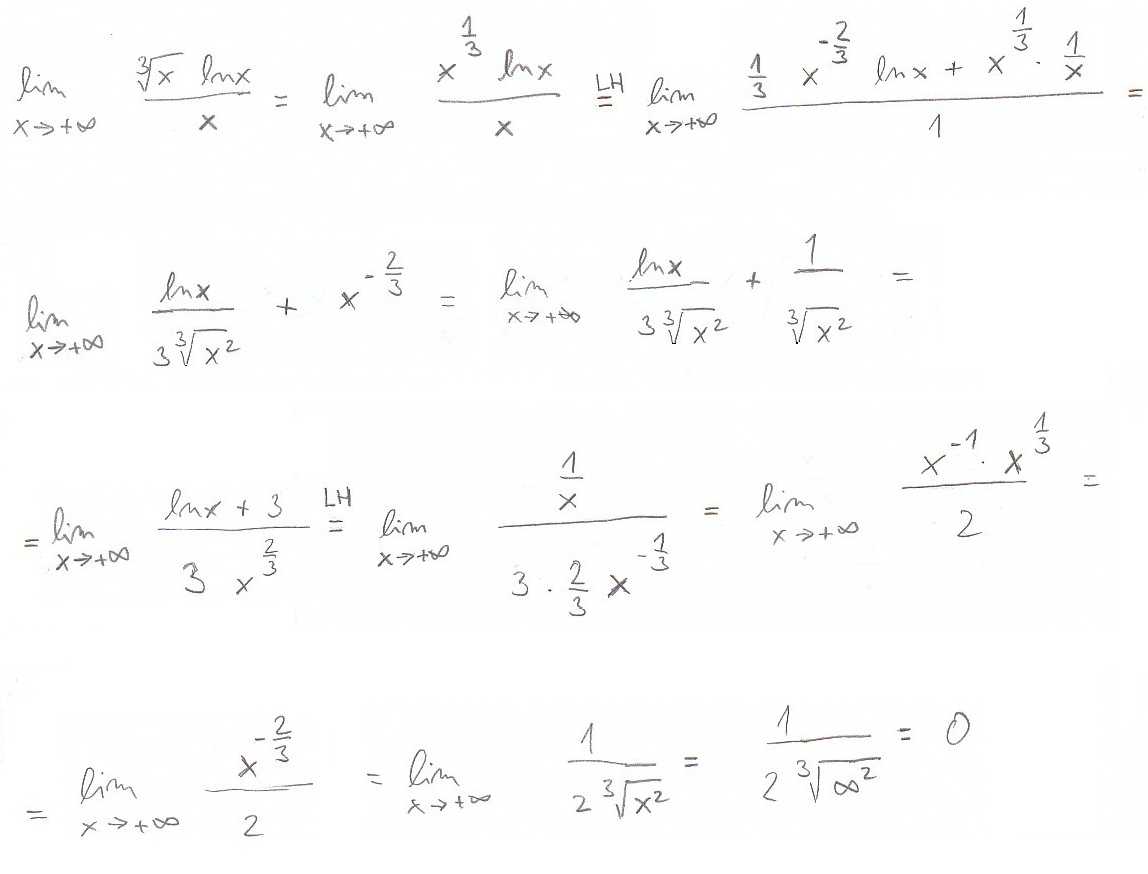 lim x→+∞ ∛x lnx / x = lim x→+∞ x^(1/3) lnx / x =^LH lim x→+∞ (1/3 x^(-2/3) lnx + x^(1/3) · 1/x) / 1 =
lim x→+∞ lnx / (3∛x²) + x^(-2/3) = lim x→+∞ lnx / (3∛x²) + 1 / ∛x² =
= lim x→+∞ (lnx + 3) / (3 x^(2/3)) =^LH lim x→+∞ (1/x) / (3 · 2/3 x^(-1/3)) = lim x→+∞ (x^(-1) · x^(1/3)) / 2 =
= lim x→+∞ x^(-2/3) / 2 = lim x→+∞ 1 / (2∛x²) = 1 / (2∛∞²) = 0